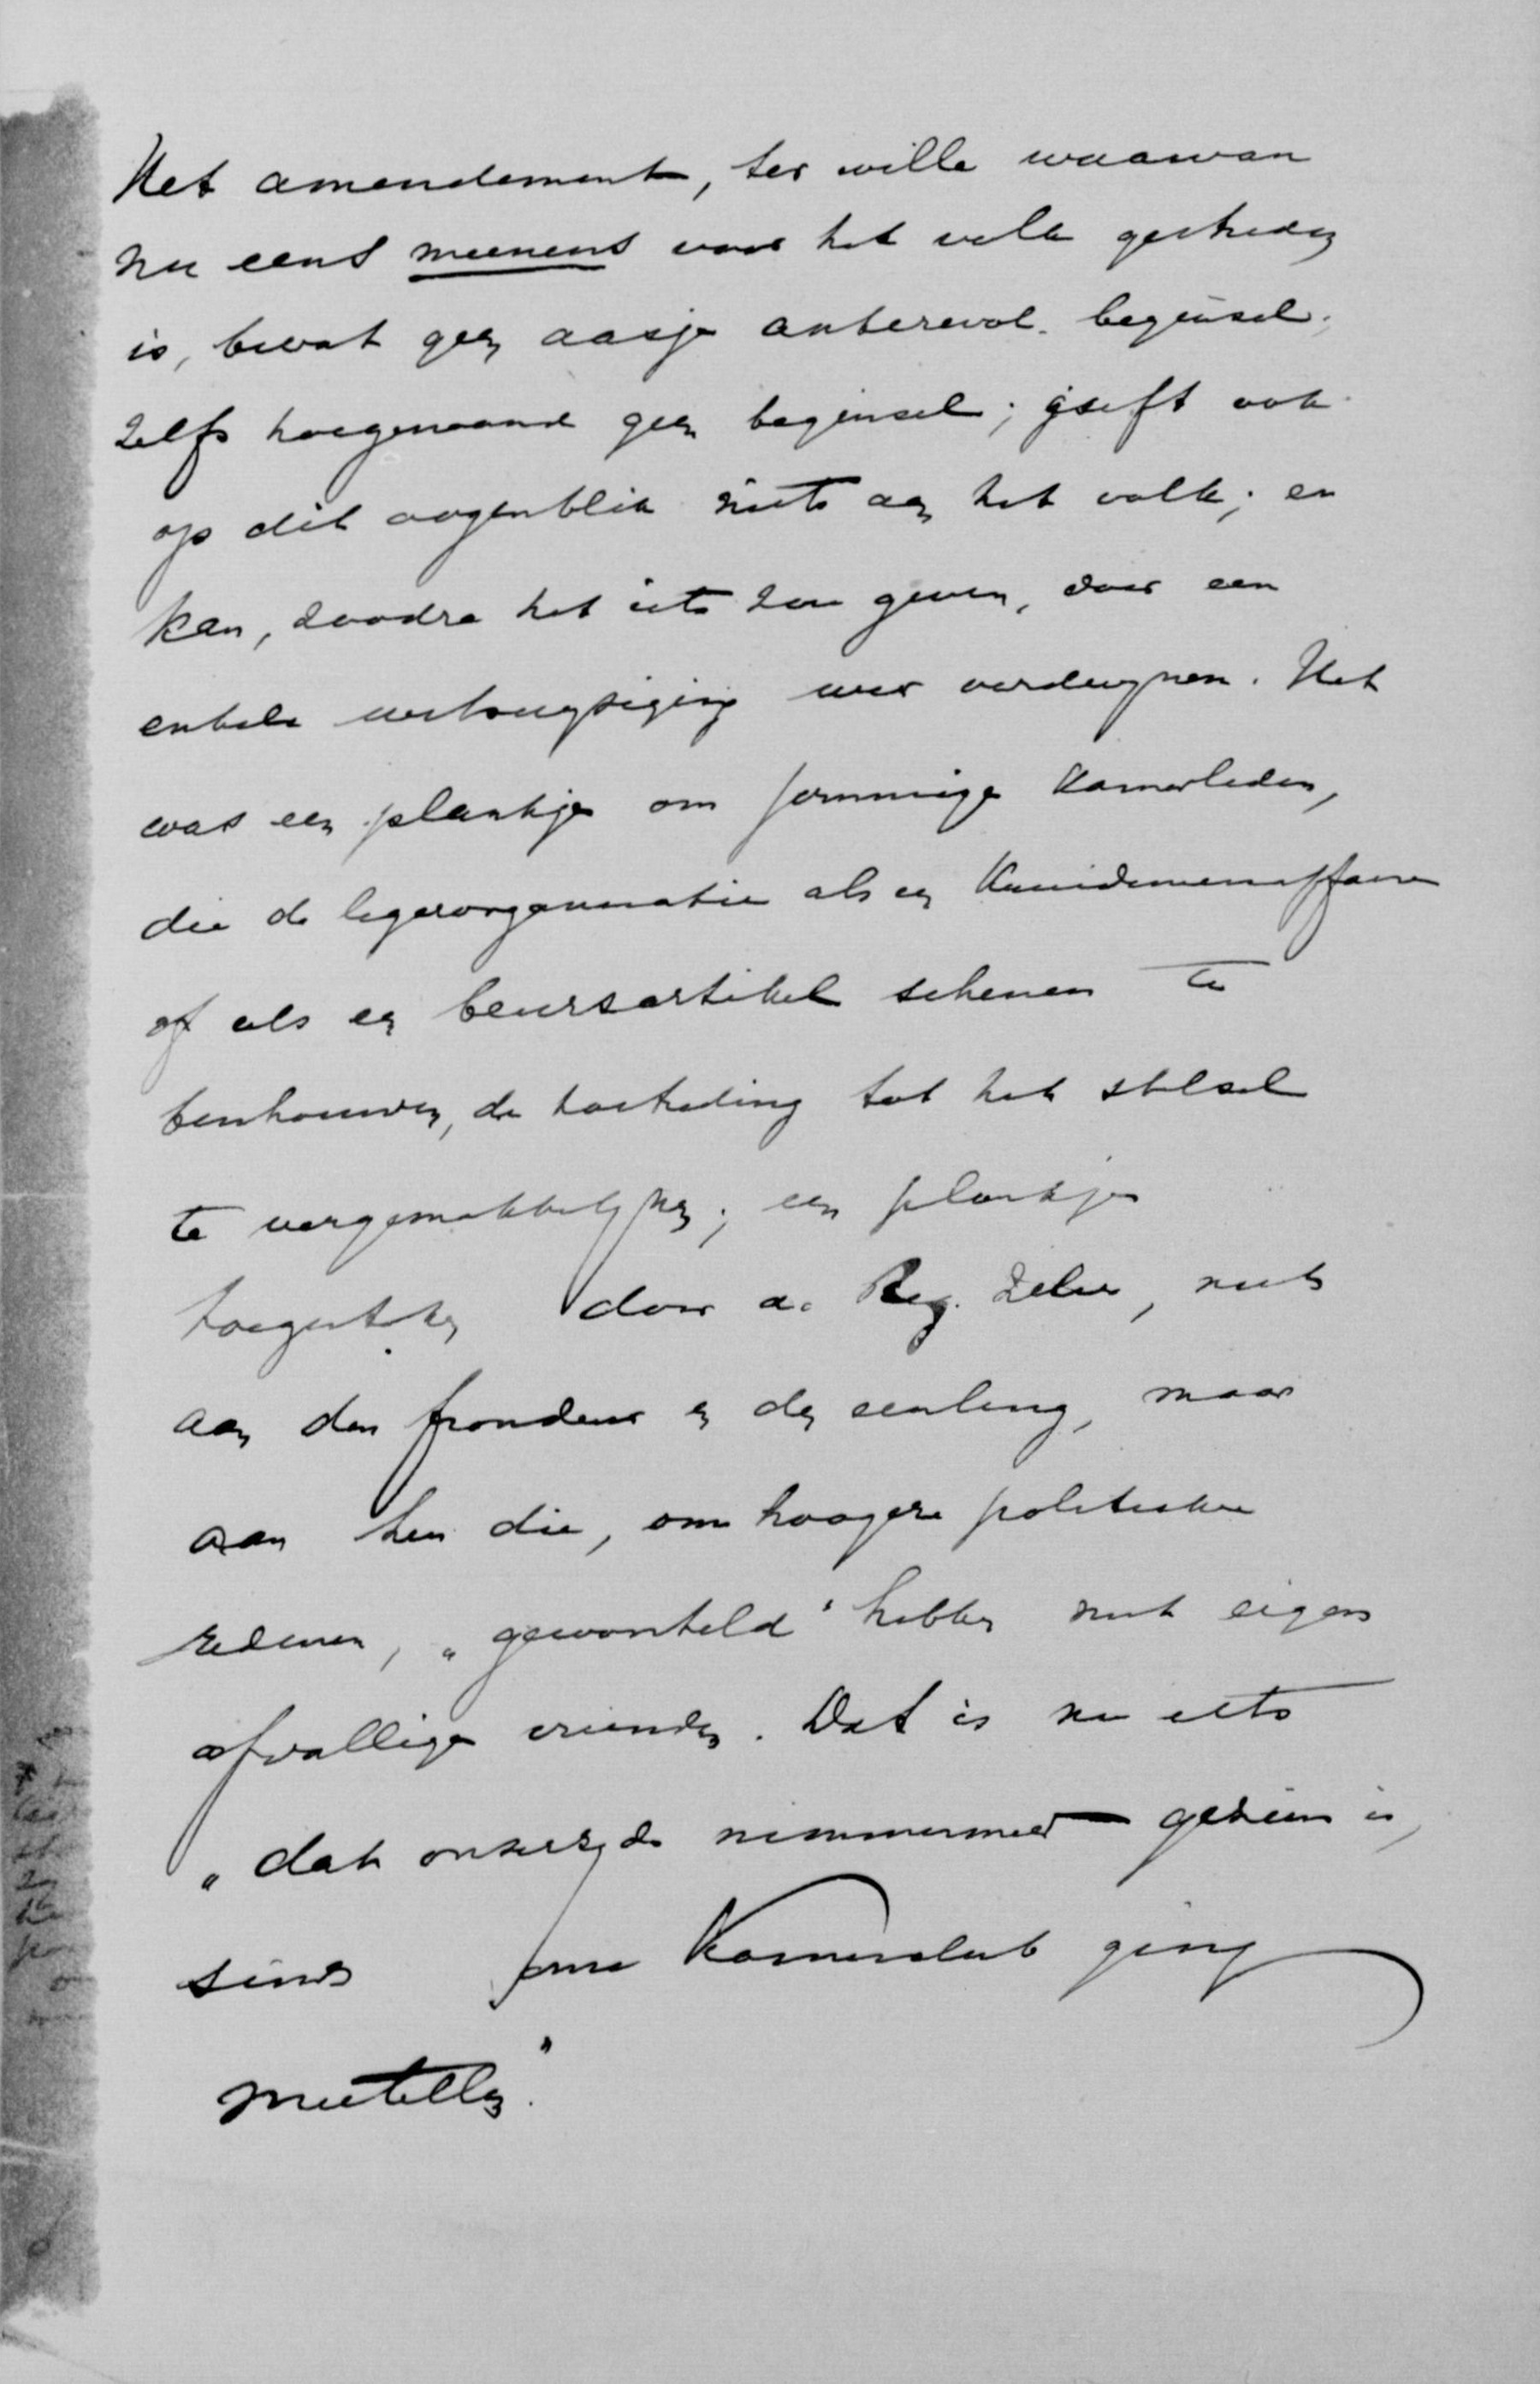 Het amendement, ter wille waarvan
nu eens meenens voor het volk gestreden
is, bevat geen aasje antirevol. beginsel;
zelfs hoegenaamd geen beginsel; geeft ook
op dit oogenblik niets aan het volk; en
kan, zoodra het iets zou geven, door een
enkele wetswijziging weer verdwijnen. Het
was een plankje om sommige Kamerleden,
die de legerorganisatie als een
of als een beursartikel schenen te
beschouwen, de toetreding tot het stelsel
te vergemakkelijken; een plankje
toegestoken door de Reg. zelve, niet
aan den frondeur en den eenling, maar
aan hen die, om hoogere politieke
redenen, „geworsteld" hebben met eigen
afvallige vrienden. Dat is nu iets
„dat onzerzijds nimmermeer geheim is,
sinds onze Kamerclub ging
meetellen."